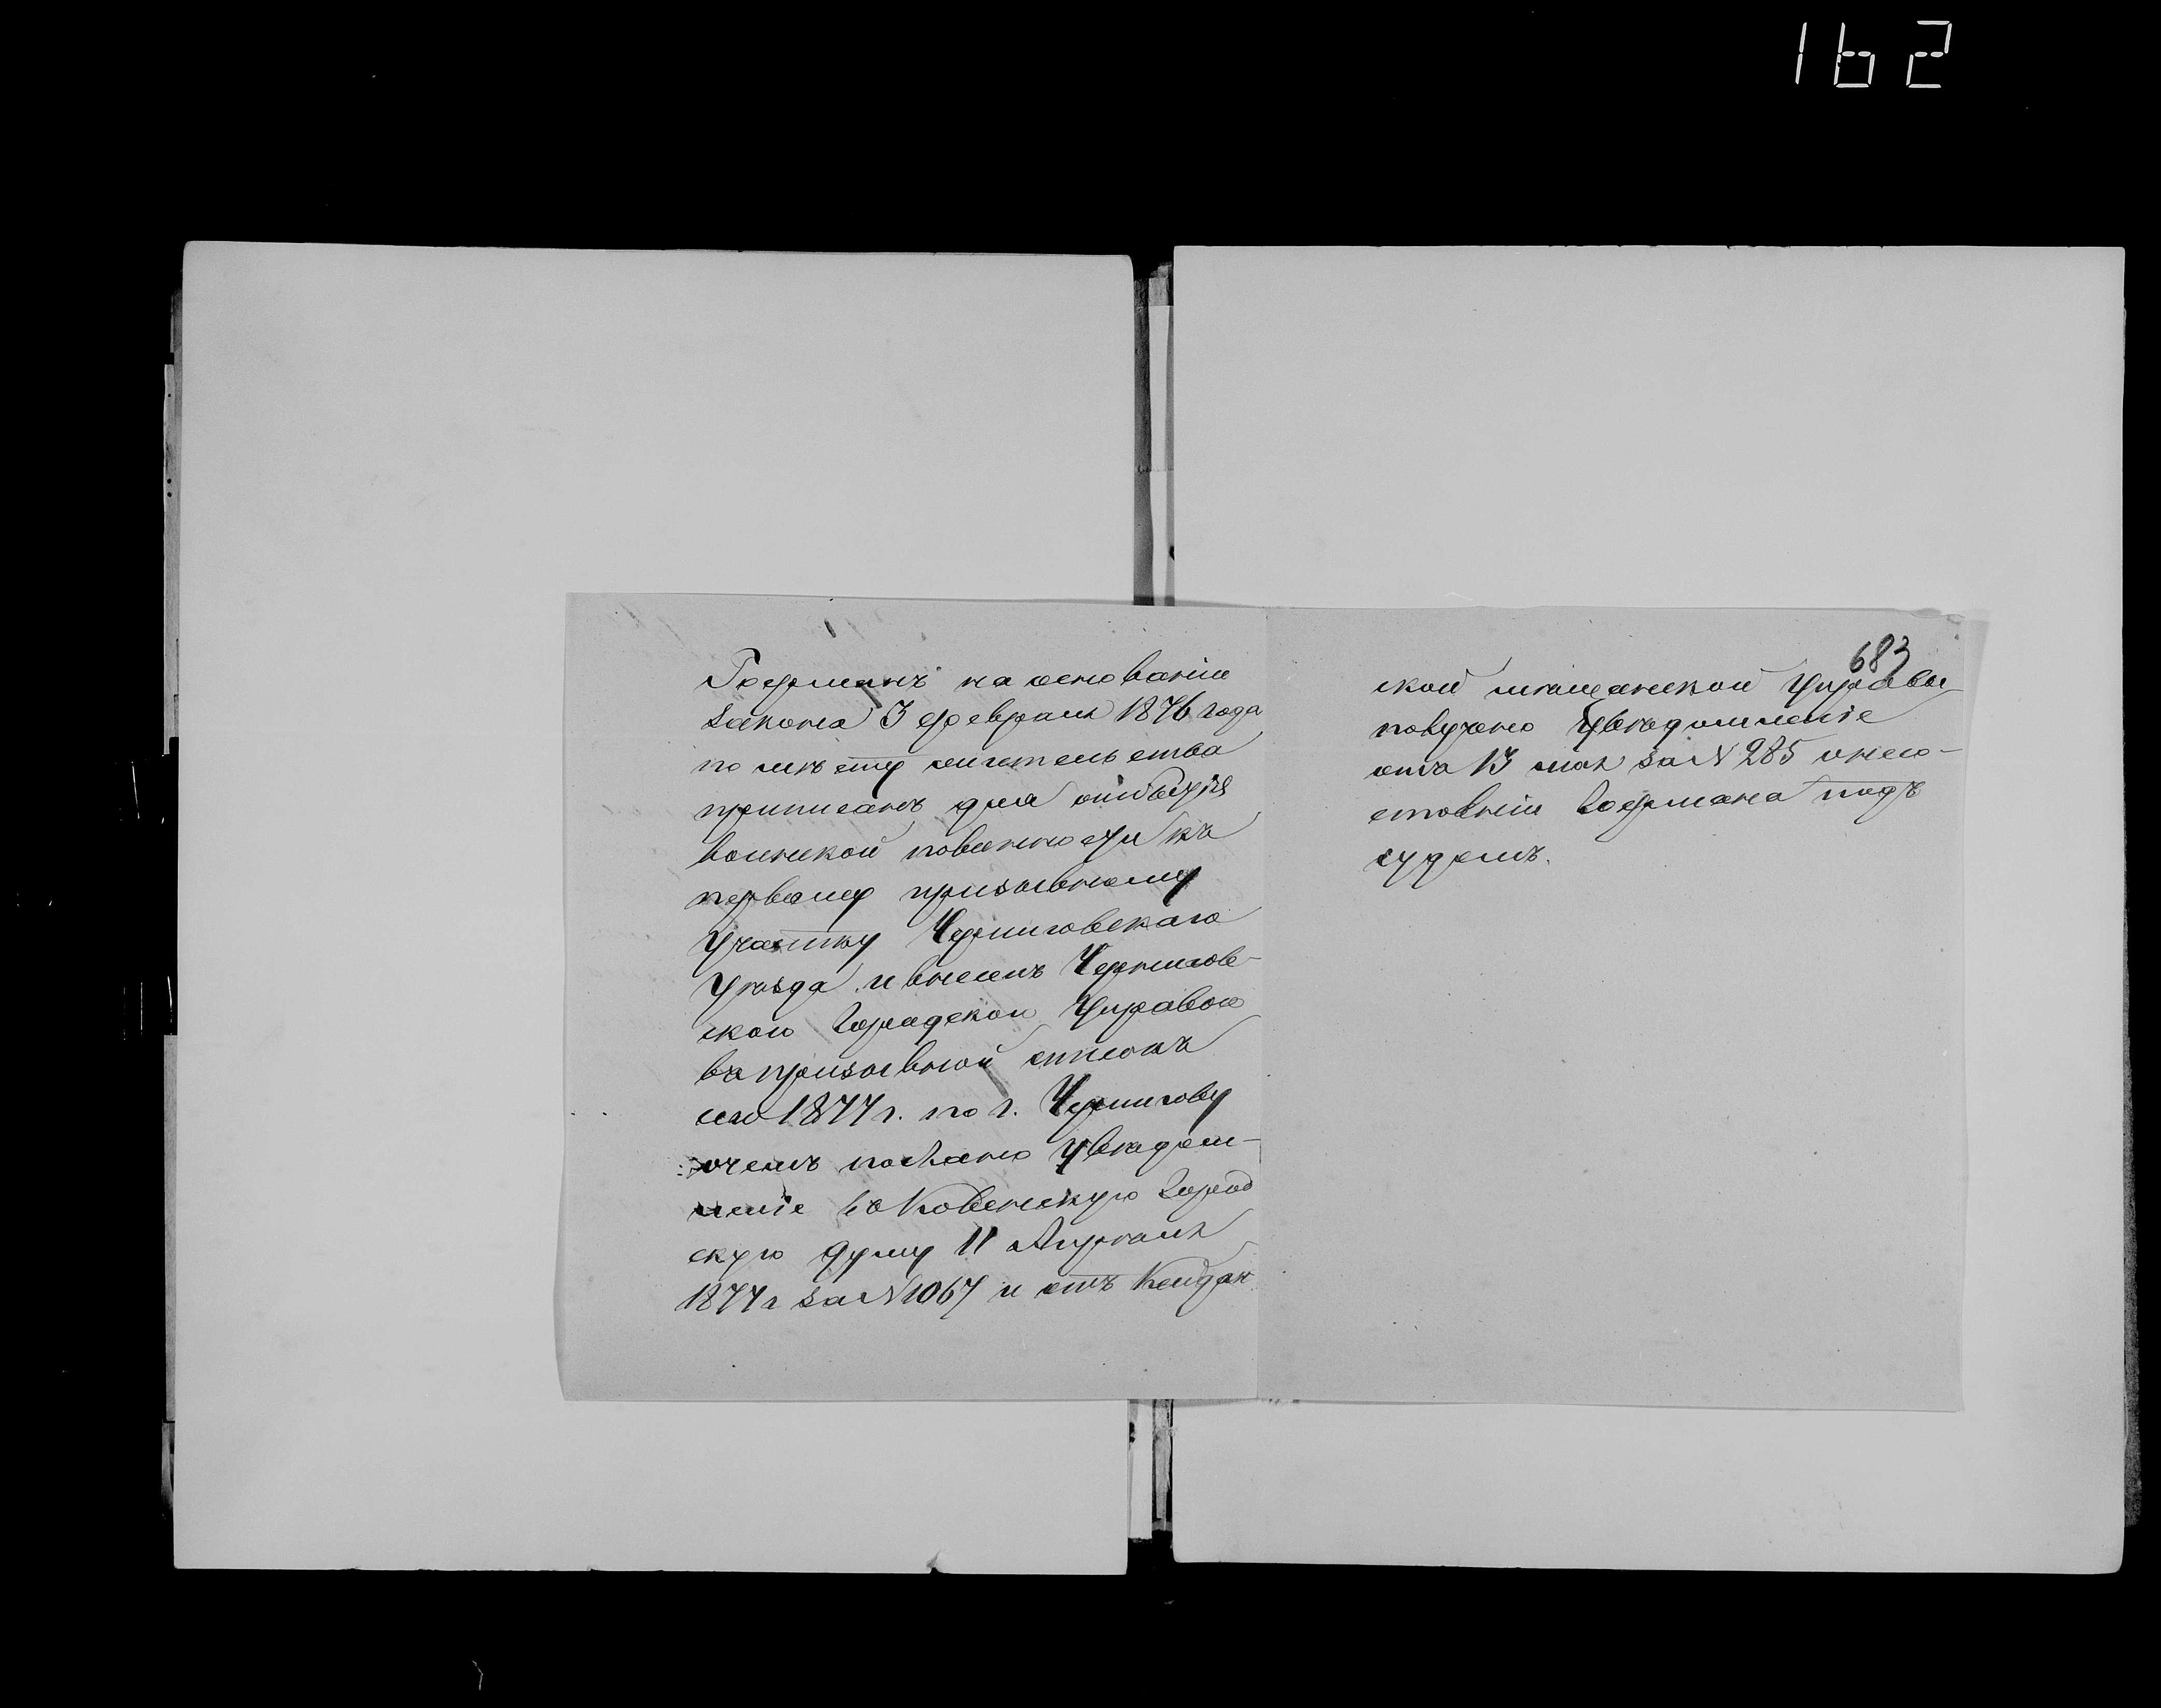 162
Гофманъ на основаніи
закона 3 февраля 1876 года
по мѣсту жительства
приписанъ для отбытія
воинской повинности къ
первому призывному
участку Черниговскаго
уѣзда и внесенъ Чернигов-
скою Городскою Управою
въ призывной списокъ
1877 г. по г. Чернигову
о чемъ послано увѣдом-
леніе въ Ковенскую Город
скую думу 11 Апрѣля
1877 г за № 1067 и отъ Кейдан
683
ской мѣщанской Управы
получено увѣдомленіе
отъ 13 мая за № 285 о несо-
стояніи Гофмана подъ
судомъ.